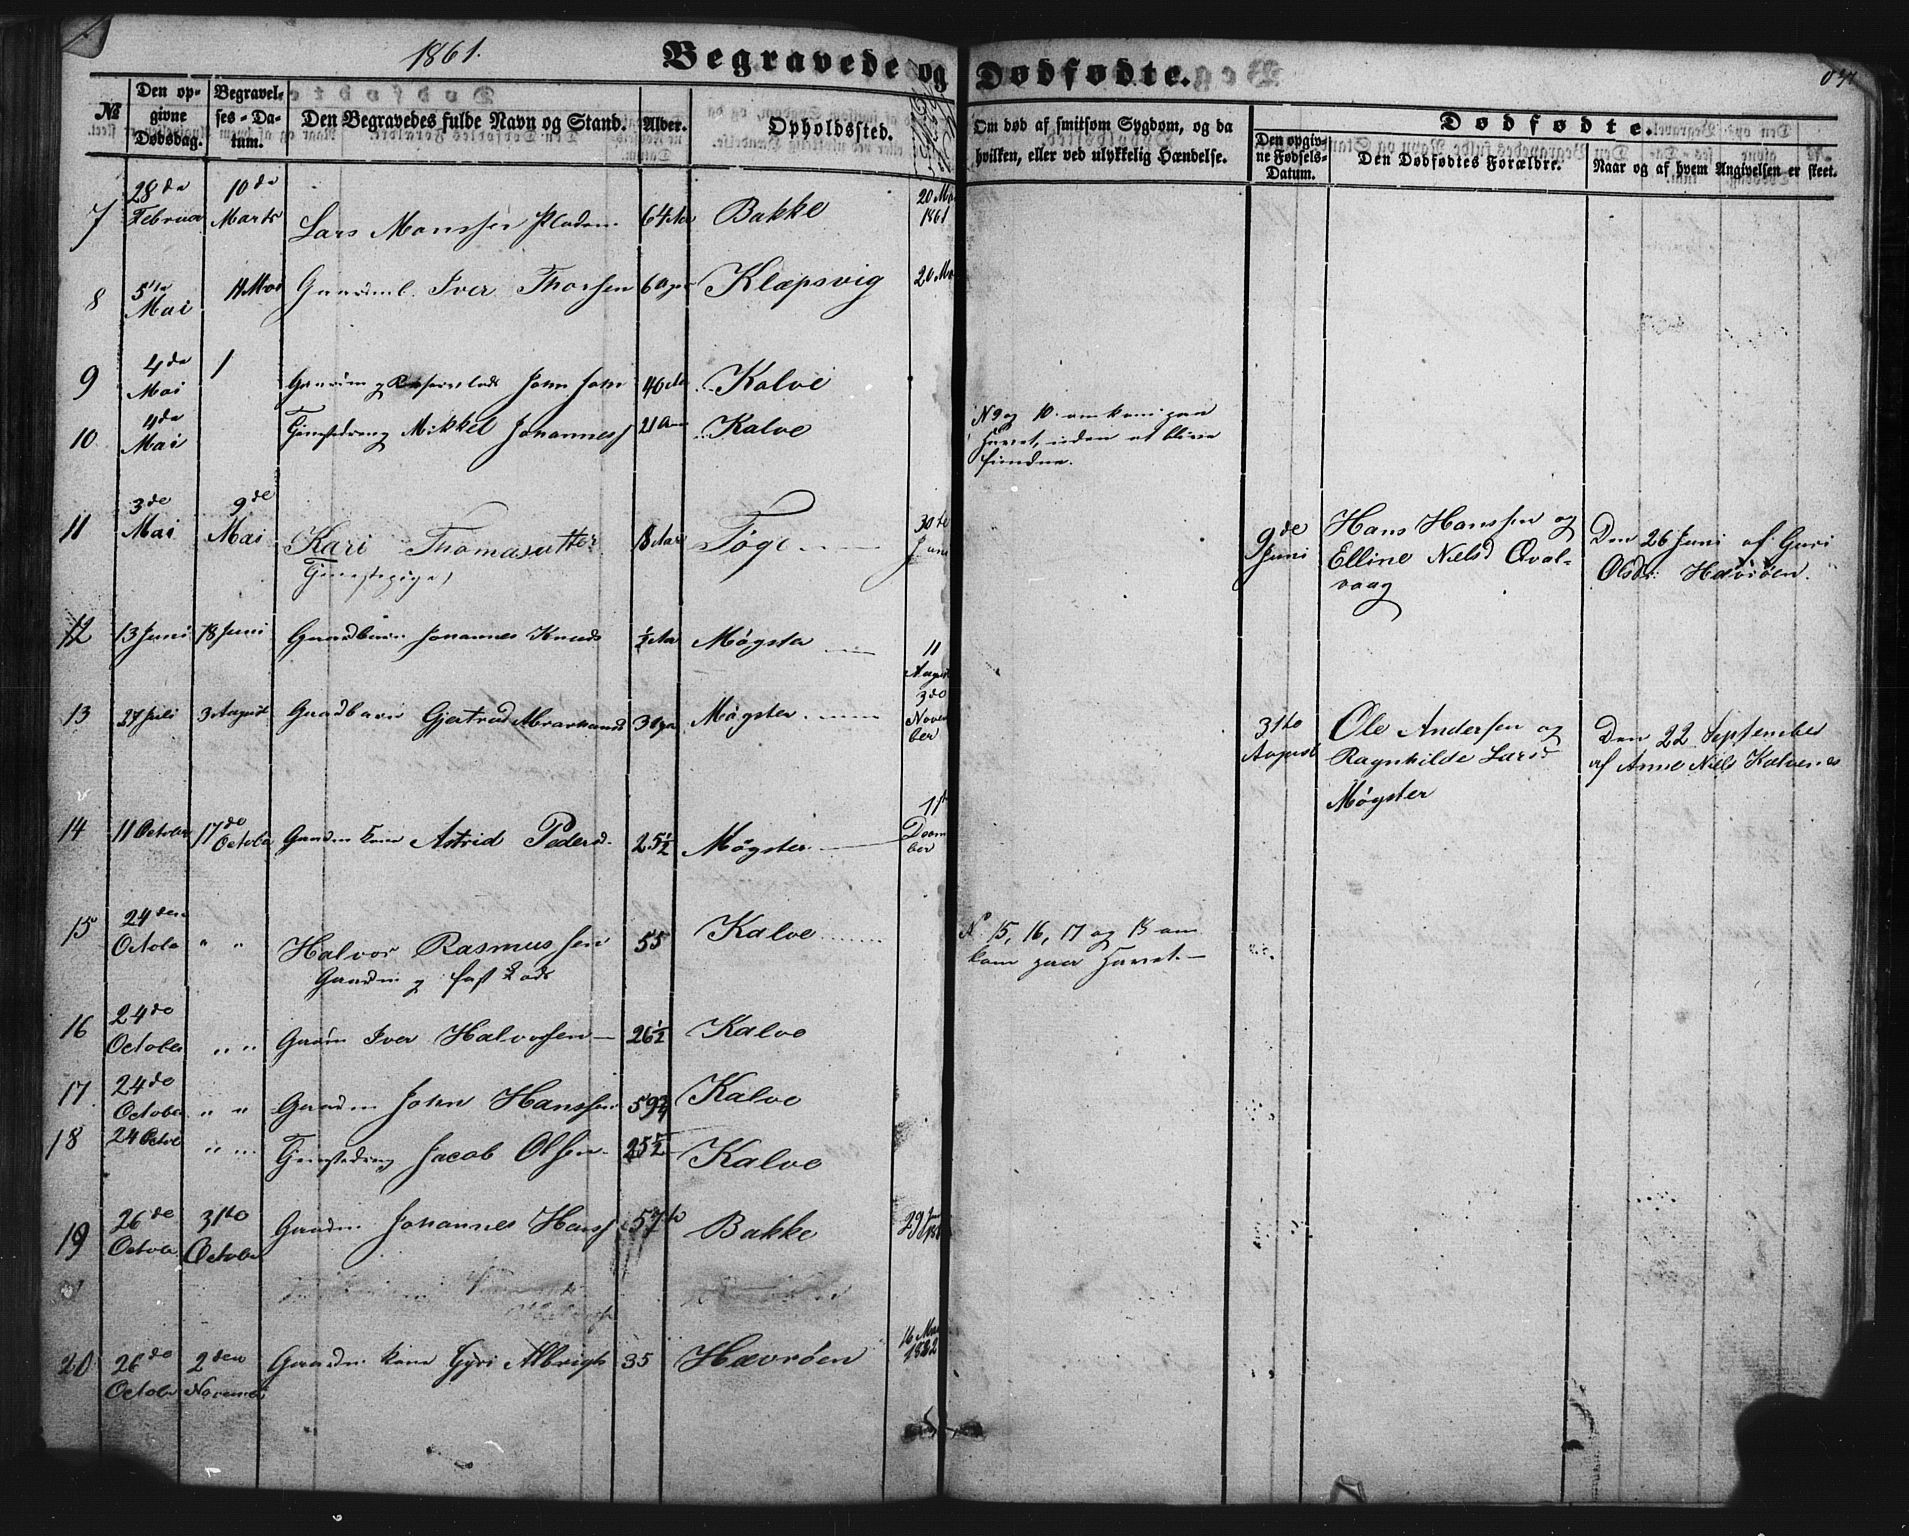 1861.
Begravede og Dødfødte.
№
Den opgivne Dødsdag.
Begravelses-Datum.
Den Begravedes fulde Navn og Stand.
Alder.
Opholdssted.
Om død af smitsom Sygdom, og da hvilken, eller ved ulykkelig Hændelse.
Dødfødte.
Den opgivne Fødsels-Datum.
Den Dødfødtes Forældre.
Naar og af hvem Angivelsen er skeet.
7 28de Februar 10de Marts Lars Monssen 64 Aar Bakke 20 Mai 1861
8 5te Mai 11 Mai Gaardml. Iver Thorsen 6 Klepsvig 20 Mai
9 4de Mai Gaardm og John Joh 40 Aar Kalve
10 4de Mai Tjenstedreng Mikkel Johanness 21 Aar Kalve
N 9 og 10. omkom paa
Havet, uden at blive
fundne.
11 3de Mai 9de Mai Kari Thomasdatter 18 Aar Føge 30te Juni
Tjenstepige
9de Juni
Hans Hanssen og
Elline Nielsd Qval-
vaag
Den 26 Juni af Guri
Olsdr. Hævrøen.
12 13 Juni 18 Juni Gaardbarn Johannes Knuds ½ Aar Møgster 11 August
13 27 Juli 3 August Gaardbarn Gjertrud Abrahamsd 3 Møgster 3de November
31te August
Ole Andersen og
Ragnhilde Larsd
Møgster
Den 22 September
af Anne Niels Kalvenes
14 11 October 17de October Gaardm kone Astrid Pedersd. 25½ Møgster 1ste December
15 24den Octobr " " Halvor Rasmussen 55 Kalve
Gaardm og fast Lods
N. 15, 16, 17 og 18 om
kom paa Havet.
16 24de October " " Gaardm Iver Halvorsen 26½ Kalve
17 24de October " " Gaardm John Hanssen 59¾ Kalve
18 24 Octbr " " Tjenstedreng Jacob Olsen 25½ Kalve
19 26de Octobr 31te October Gaardm Johannes Hanss 57 Bakke 29
20 26de October 2den November Gaardm kone Gjøri Albrigts 35 Hævrøen 16 Mar 1862